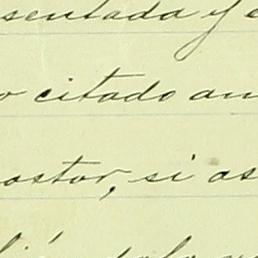 sentada y e
o citado an
ostor, si as